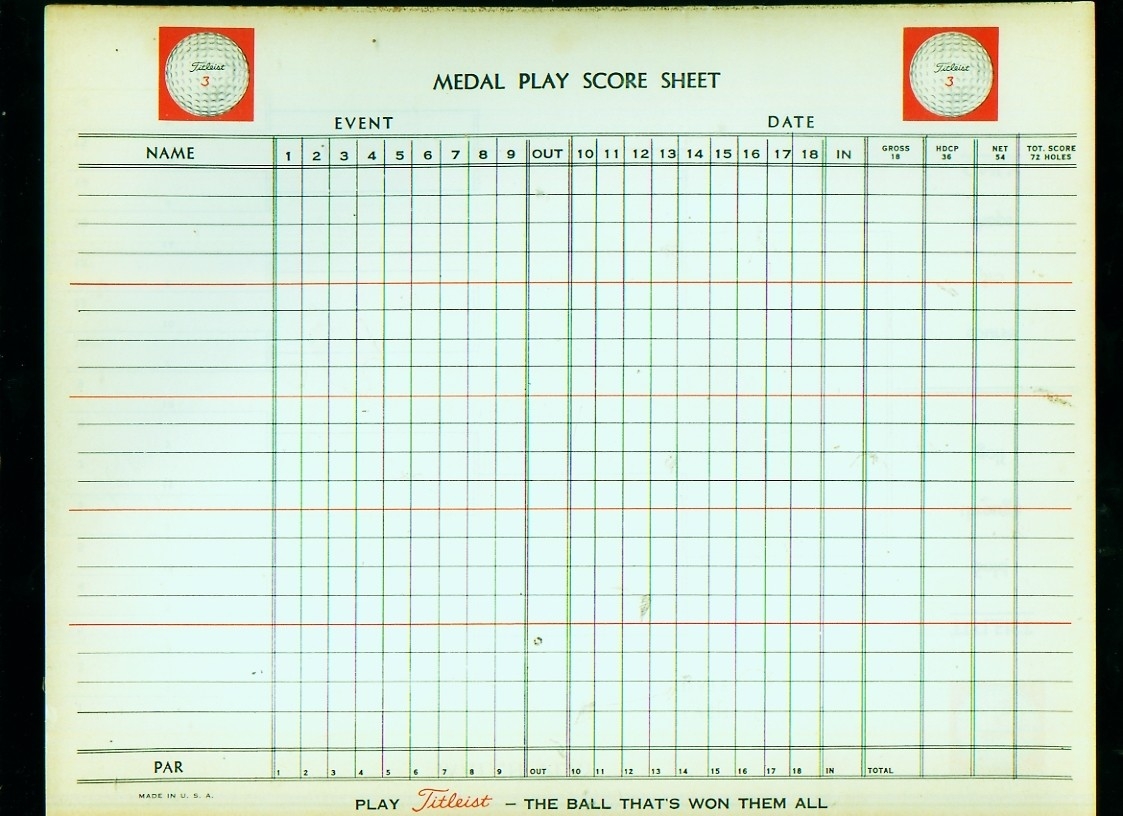 Titleist
3
Titleist
3
MEDAL PLAY SCORE SHEET
EVENT DATE
NAME 1 2 3 4 5 6 7 8 9 OUT 10 11 12 13 14 15 16 17 18 IN GROSS 18 HDCP 36 NET 54 TOT. SCORE 72 HOLES
PAR 1 2 3 4 5 6 7 8 9 OUT 10 11 12 13 14 15 16 17 18 IN TOTAL
MADE IN U. S. A.
PLAY Titleist – THE BALL THAT'S WON THEM ALL